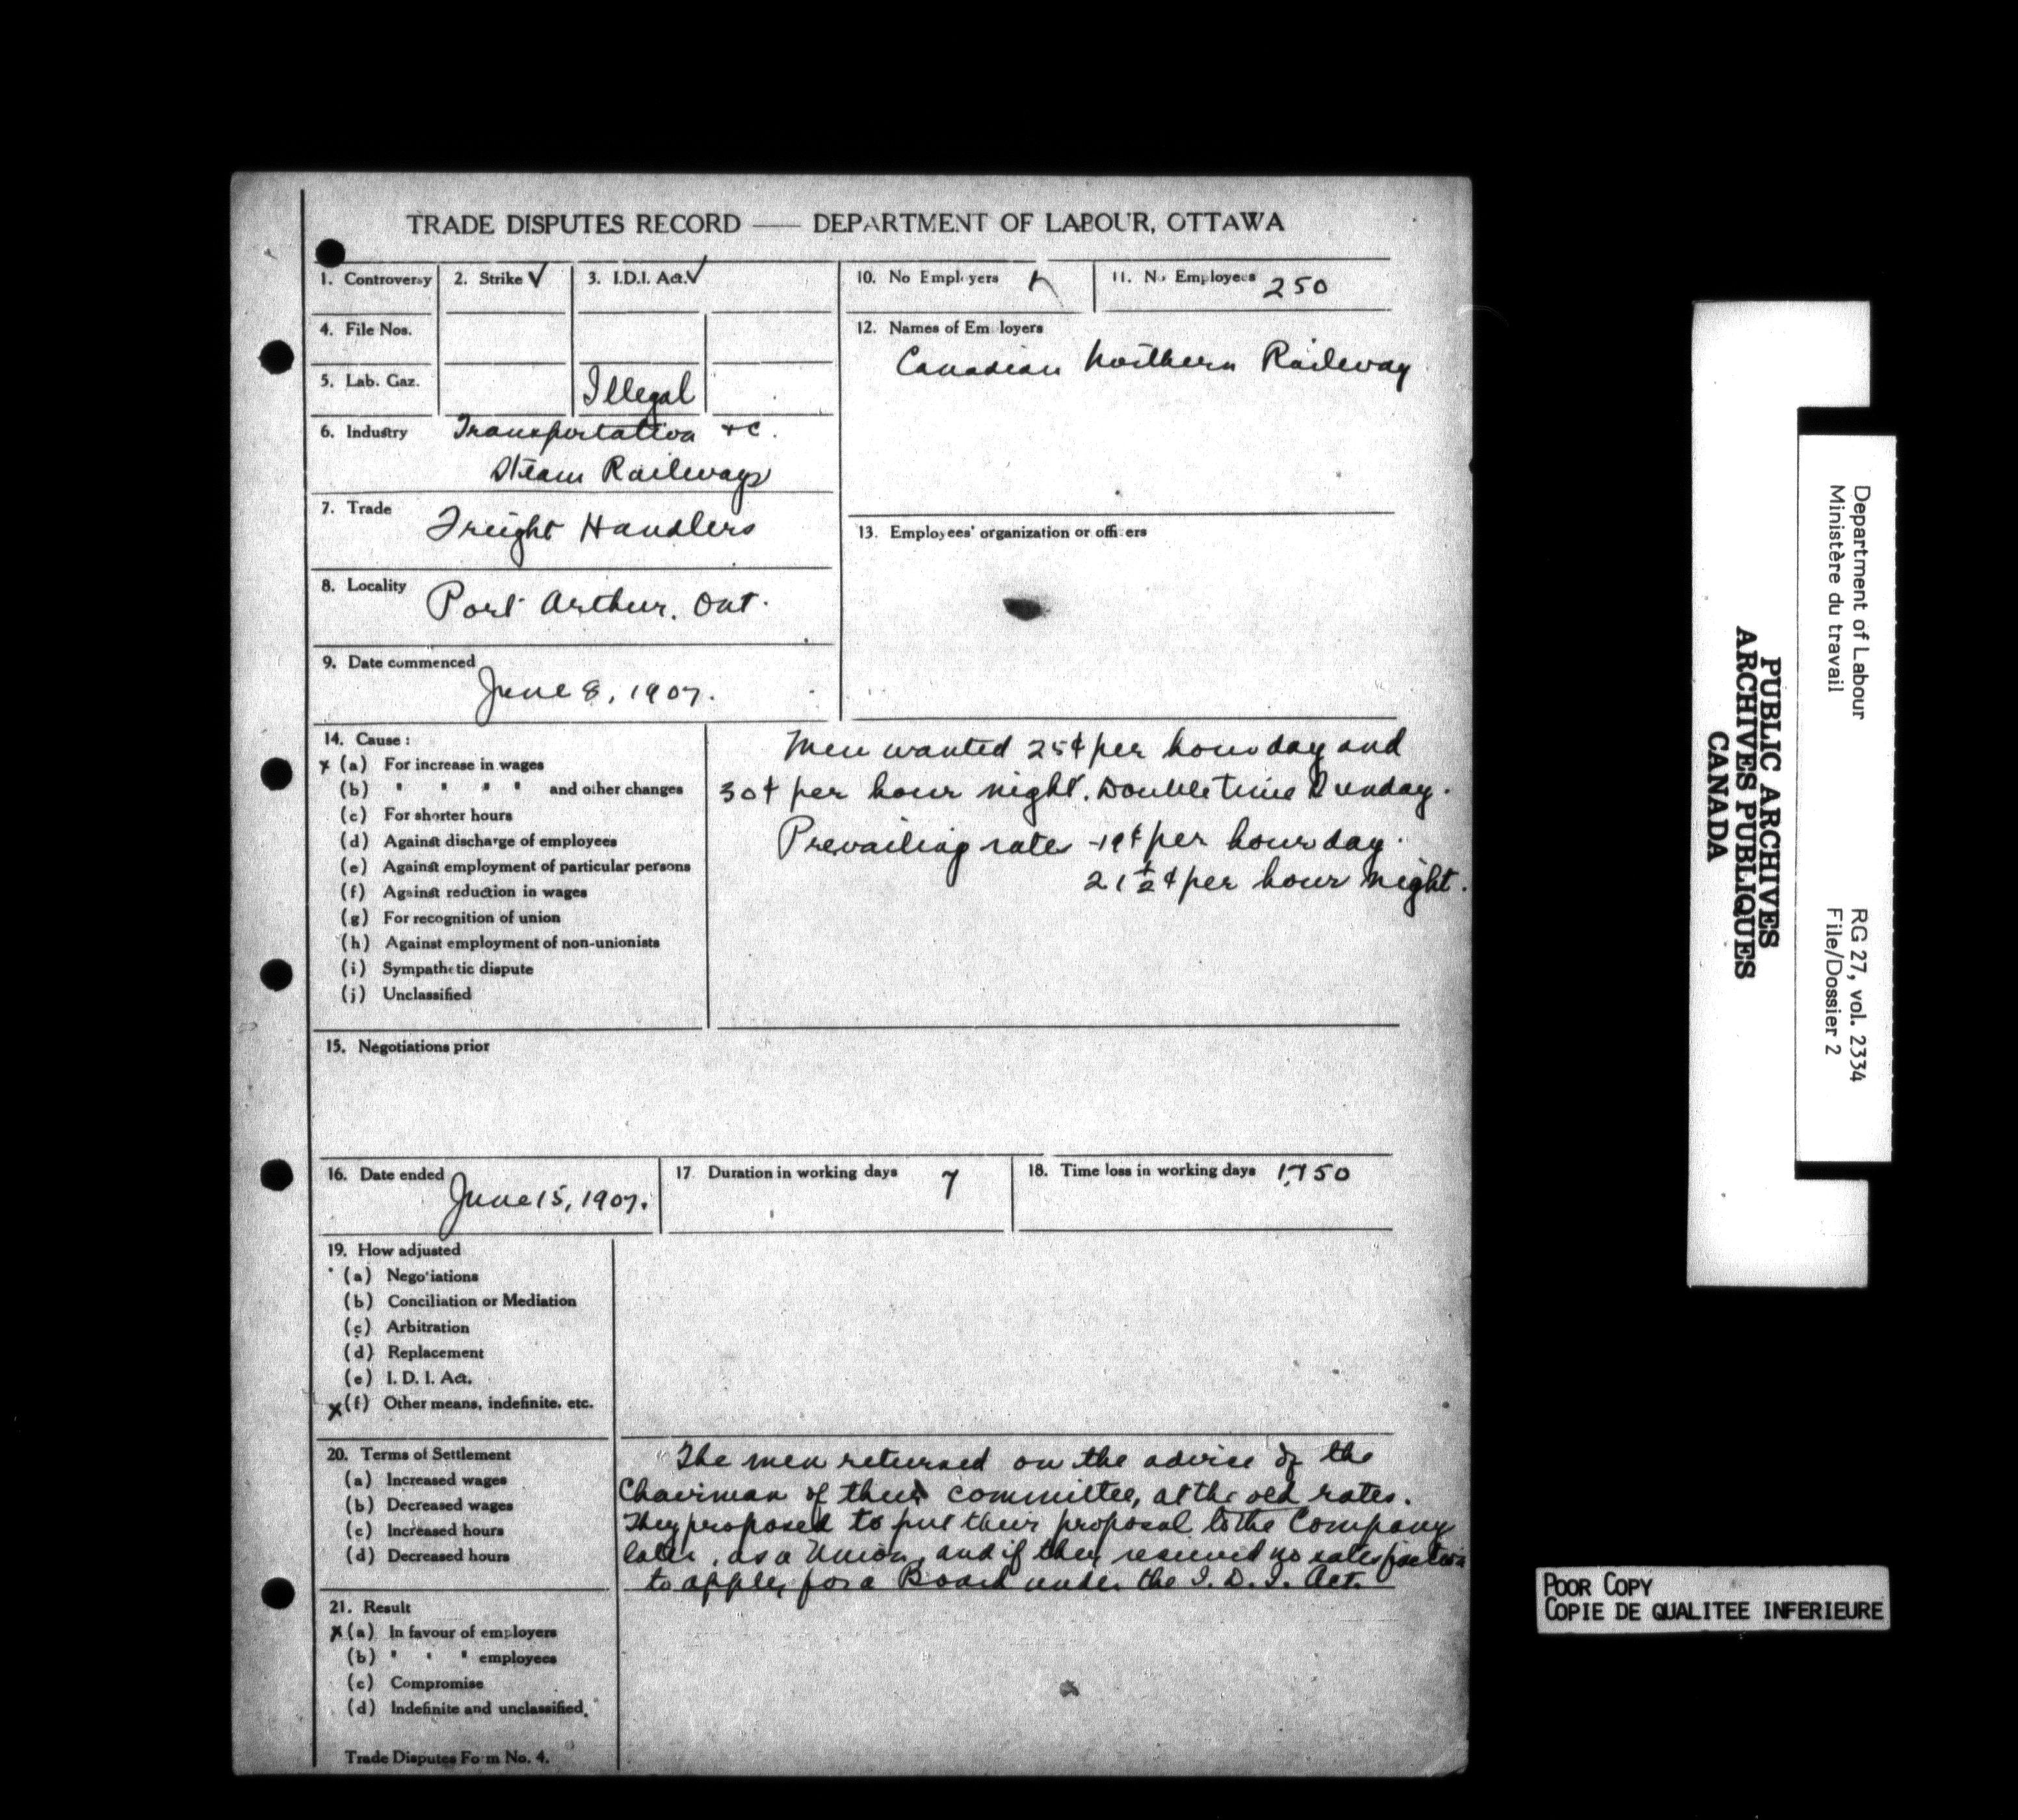 TRADE DISPUTES RECORD —— DEPARTMENT OF LABOUR, OTTAWA
1. Controversy
2. Strike ✓
3. I.D.I. Act. ✓
4. File Nos.
5. Lab. Gaz.
Illegal
6. Industry Transportation &c.
Steam Railways
7. Trade Freight Handlers
8. Locality Port Arthur, Ont.
9. Date commenced
June 8, 1907.
10. No Employers
11. No Employees 250
12. Names of Employers
Canadian Northern Railway
13. Employees' organization or officers
14. Cause :
x (a) For increase in wages
(b) " " " " and other changes
(c) For shorter hours
(d) Against discharge of employees
(e) Against employment of particular persons
(f) Against reduction in wages
(g) For recognition of union
(h) Against employment of non-unionists
(i) Sympathetic dispute
(j) Unclassified
Men wanted 25¢ per hour day and
30¢ per hour night. Double time Sunday.
Prevailing rates - 19¢ per hour day.
21½¢ per hour night.
15. Negotiations prior
16. Date ended
June 15, 1907.
17. Duration in working days 7
18. Time loss in working days 1,750
19. How adjusted
(a) Negotiations
(b) Conciliation or Mediation
(c) Arbitration
(d) Replacement
(e) I. D. I. Act.
x (f) Other means, indefinite, etc.
20. Terms of Settlement
(a) Increased wages
(b) Decreased wages
(c) Increased hours
(d) Decreased hours
The men returned on the advice of the
Chairman of their committee, at the old rates.
They proposed to put their proposal to the Company
later, as a Union, and if they received no satisfaction
to apply for a Board under the I. D. I. Act.
21. Result
x (a) In favour of employers
(b) " " " employees
(c) Compromise
(d) Indefinite and unclassified.
Trade Disputes Form No. 4.
Department of Labour
Ministère du travail
RG 27, vol. 2334
File/Dossier 2
PUBLIC ARCHIVES
ARCHIVES PUBLIQUES
CANADA
POOR COPY
COPIE DE QUALITEE INFERIEURE